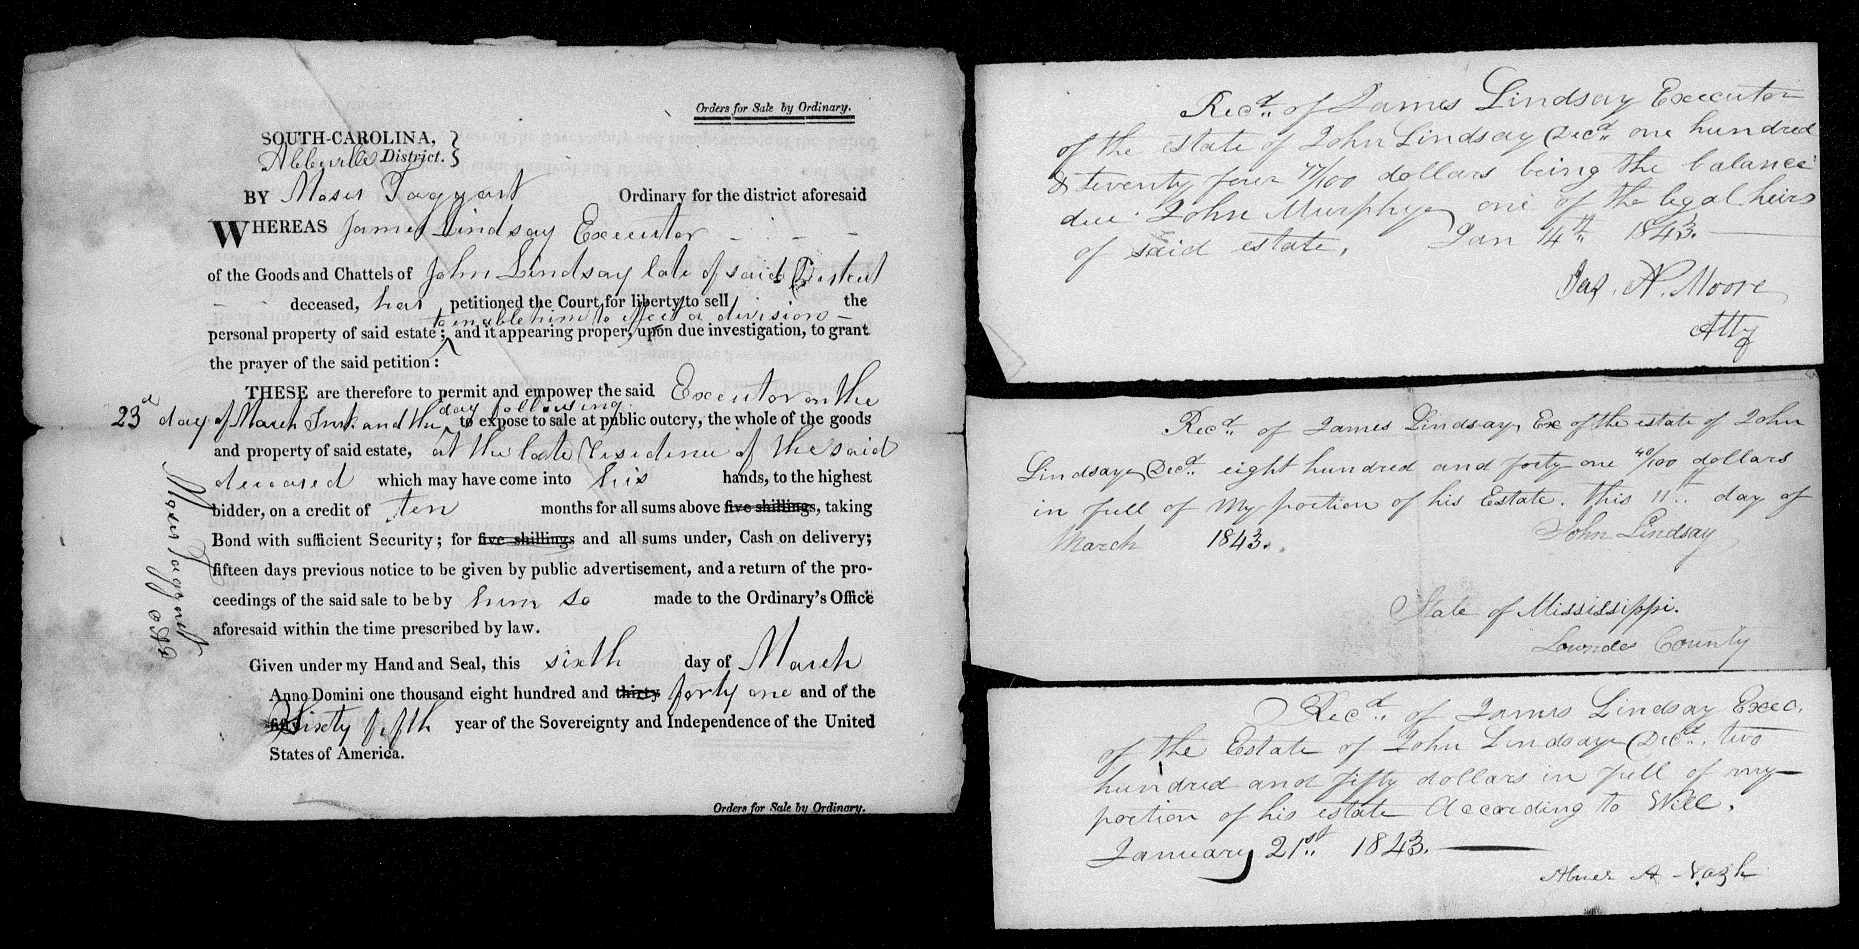 Orders for Sale by Ordinary.
SOUTH-CAROLINA,
Abbeville District.
BY Moses Taggart Ordinary for the district aforesaid
WHEREAS James Lindsay Executor
of the Goods and Chattels of John Lindsay late of said District
deceased, has petitioned the Court for liberty to sell the
to enable him to effect a division
personal property of said estate; and it appearing proper, upon due investigation, to grant
the prayer of the said petition:
THESE are therefore to permit and empower the said Executor on the
day following
23d day of March Inst. and the to expose to sale at public outcry, the whole of the goods
and property of said estate, at the late Residence of the said
deceased which may have come into his hands, to the highest
bidder, on a credit of ten months for all sums above five shillings, taking
Bond with sufficient Security; for five shillings and all sums under, Cash on delivery;
fifteen days previous notice to be given by public advertisement, and a return of the pro-
ceedings of the said sale to be by him so made to the Ordinary's Office
aforesaid within the time prescribed by law.
Given under my Hand and Seal, this sixth day of March
Anno Domini one thousand eight hundred and thirty forty one and of the
Sixty fifth year of the Sovereignty and Independence of the United
States of America.
Moses Taggart
Orders for Sale by Ordinary.
Recd. of James Lindsay Executor
of the estate of John Lindsay Decd. one hundred
& twenty four 77/100 dollars being the balance
due John Murphy one of the legal heirs
of said estate. Jan 14th 1843.
Jas. A. Moore
Atty
Recd. of James Lindsay Ex of the estate of John
Lindsay Decd. eight hundred and forty one 40/100 dollars
in full of My portion of his Estate. this 11th day of
March 1843.
John Lindsay
State of Mississippi.
Lowndes County
Recd. of James Lindsay Exec.
of the Estate of John Lindsay Decd. two
hundred and fifty dollars in full of my
portion of his estate According to Will.
January 21st 1843.
Abner A Nash